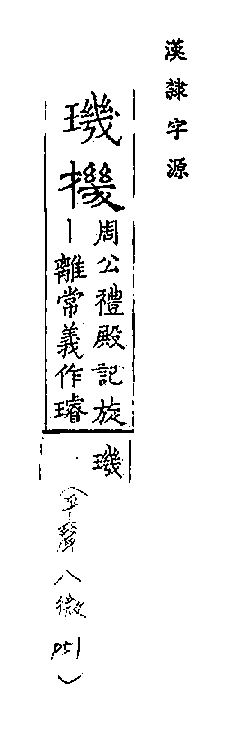 漢隸字源
璣
機 周公禮殿記旋璣
丨離常義作璿
（平聲 八微 051）